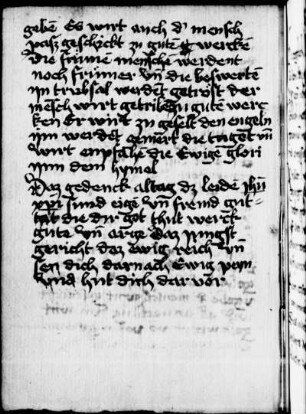 geben Es wirt auch d' mensch
pasz geschickt zu guten wercken
Die frumen mensche werdent
noch frumer vn die beswerten
jn trubsal werdet getrost der
mesch wirt zu gute werc
ken Er wirt zu geselt den engeln
jm werdet gemert die tuget vn
wirt enpfahe die Ewige glori
jnn dem hymel
Daz gedenck altag dz leide
sund eige vn fremd gut
tat die dir got thut werck
gute vn arge daz jungst
gericht daz ewig reich vn
dich darnach Ewig peyn
vnd hut dich dar vor